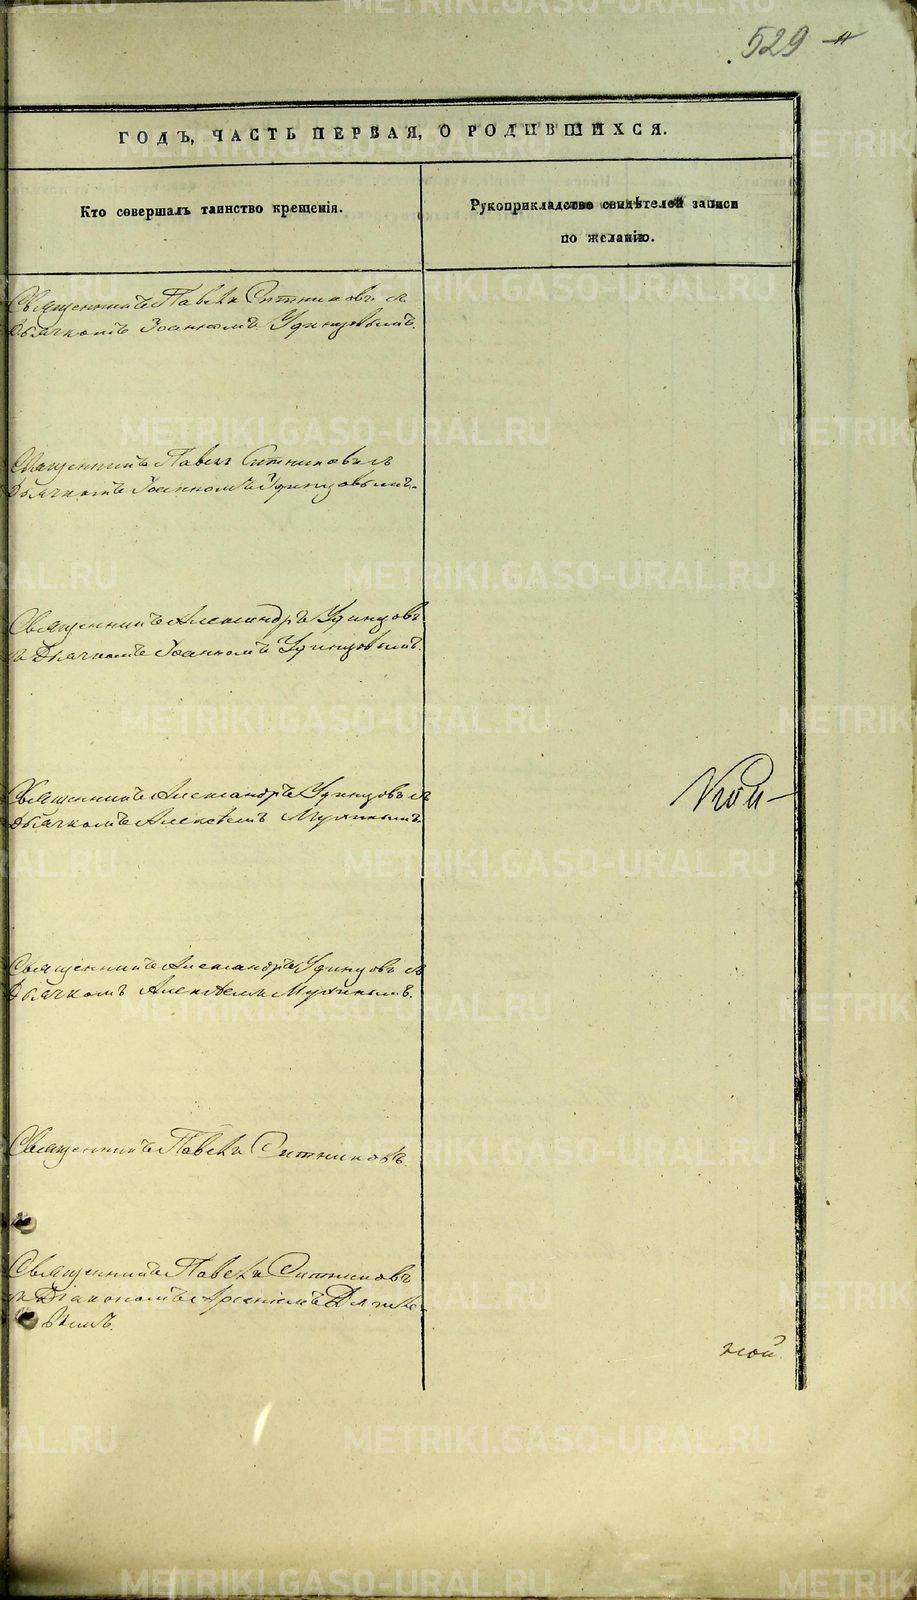 529
ГОДЪ, ЧАСТЬ ПЕРВАЯ, О РОДИВШИХСЯ.
Кто совершалъ таинство крещенія.
Рукоприкладство свидѣтелей записи
по желанію.
Священникъ Павелъ Ситниковъ съ
Дьячкомъ Іоанномъ Удинцовымъ.
Священникъ Павелъ Ситниковъ съ
Дьячкомъ Іоанномъ Удинцовымъ.
Священникъ Александръ Удинцовъ
съ Дьячкомъ Іоанномъ Удинцовымъ.
Священникъ Александръ Удинцовъ съ
Дьячкомъ Алексѣемъ Мухинымъ.
Священникъ Александръ Удинцовъ съ
Дьячкомъ Алексѣемъ Мухинымъ.
Священникъ Павелъ Ситниковъ.
Священникъ Павелъ Ситниковъ
съ Діакономъ Арсеніемъ
вымъ.
METRIKI.GASO-URAL.RU